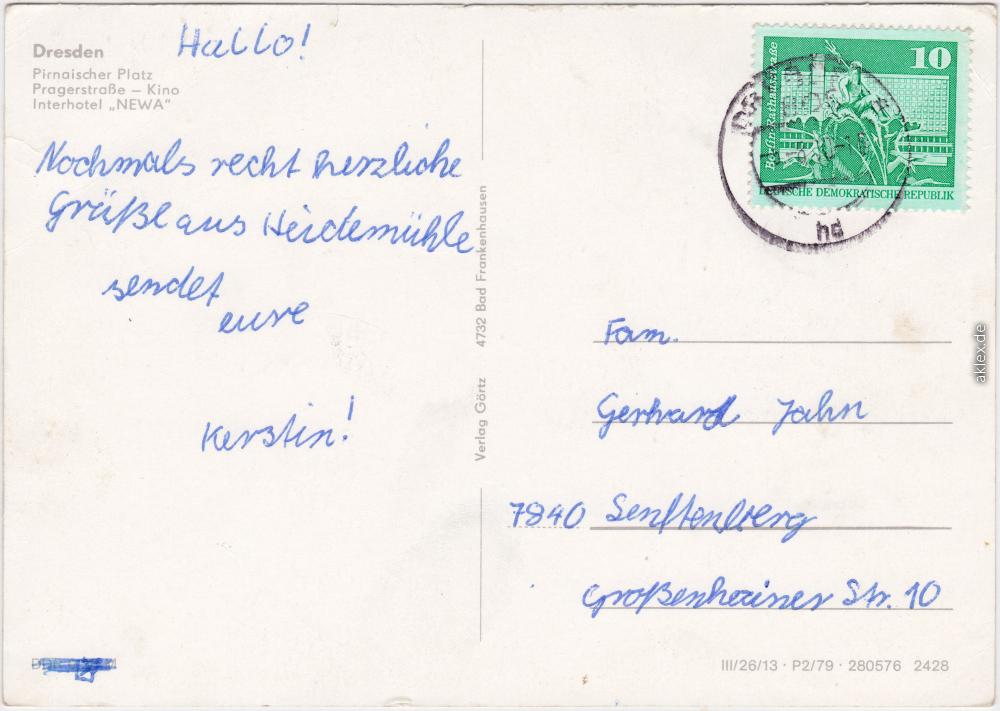 Dresden
Pirnaischer Platz
Pragerstraße – Kino
Interhotel „NEWA"
Hallo!
Nochmals recht herzliche
Grüße aus Heidemühle
sendet
eure
Kerstin!
Verlag Görtz 4732 Bad Frankenhausen
10
Berlin-Rathausstraße
DEUTSCHE DEMOKRATISCHE REPUBLIK
hd
Fam.
Gerhard Jahn
7840 Senftenberg
Großenhainer Str. 10
III/26/13 · P2/79 · 280576 2428
aklex.de